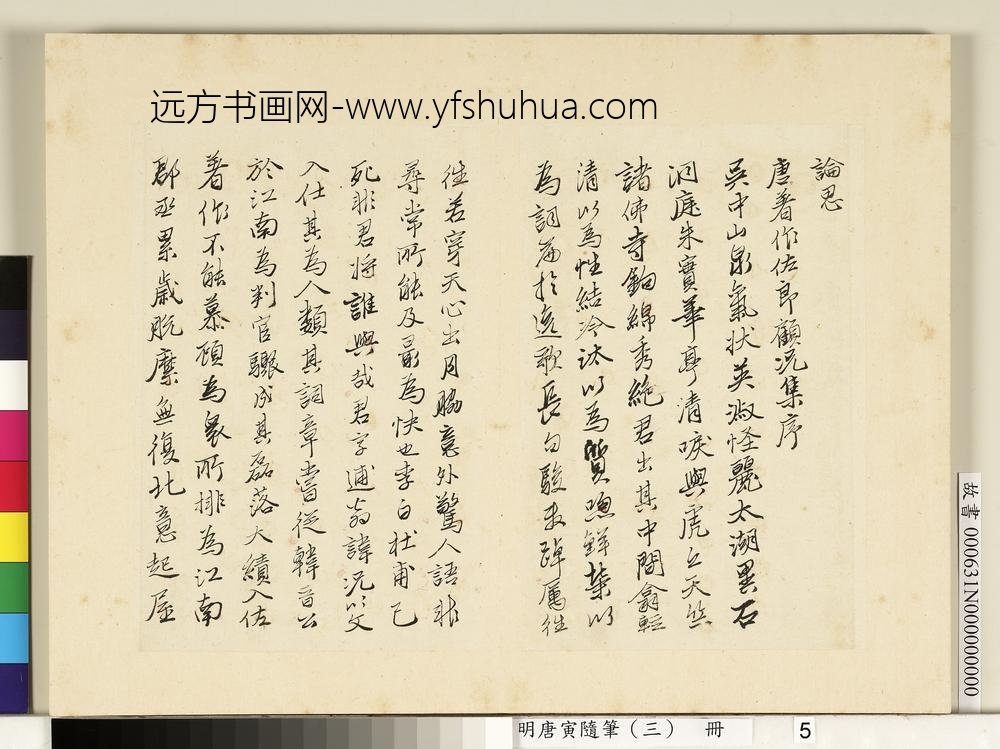 远方书画网-www.yfshuhua.com
論思
唐著作佐郎顧況集序
吳中山泉氣狀英淑怪麗太湖異石
洞庭朱實華亭清唳與虎丘天竺
諸佛寺鉤綿秀絶君出其中間翕輕
清以為性結冷汰以為質煦鮮榮以
為詞篇於逸歌長句駿發踔厲往
往若穿天心出月脇意外驚人語非
尋常所能及最為快也李白杜甫已
死非君將誰與哉君字逋翁諱況以文
入仕其為人類其詞章嘗從韓晉公
於江南為判官驟成其磊落大績入佐
著作不能慕顧為衆所排為江南
郡丞累歲脫縻無復北意起屋
故書 000631N000000000
明唐寅隨筆(三) 冊 5